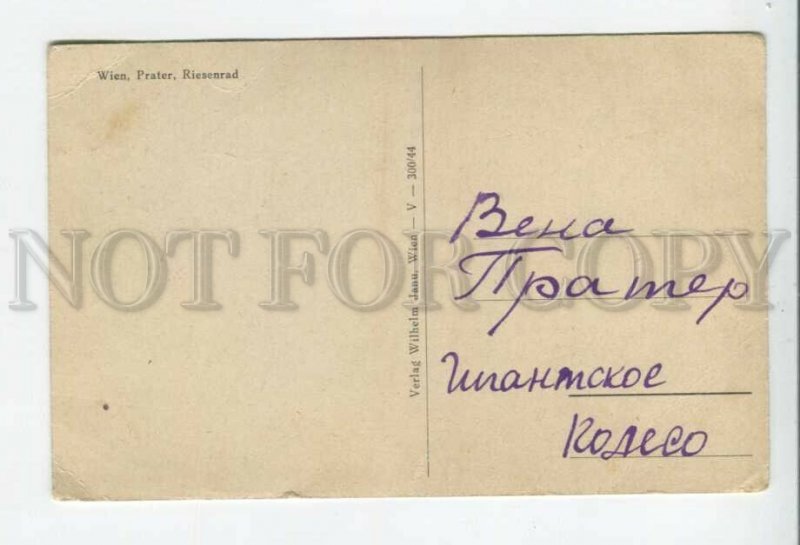 Wien, Prater, Riesenrad
Verlag Wilhelm Janu, Wien — V — 300/44
Вена
Пратер
Гигантское
Колесо
NOT FOR COPY